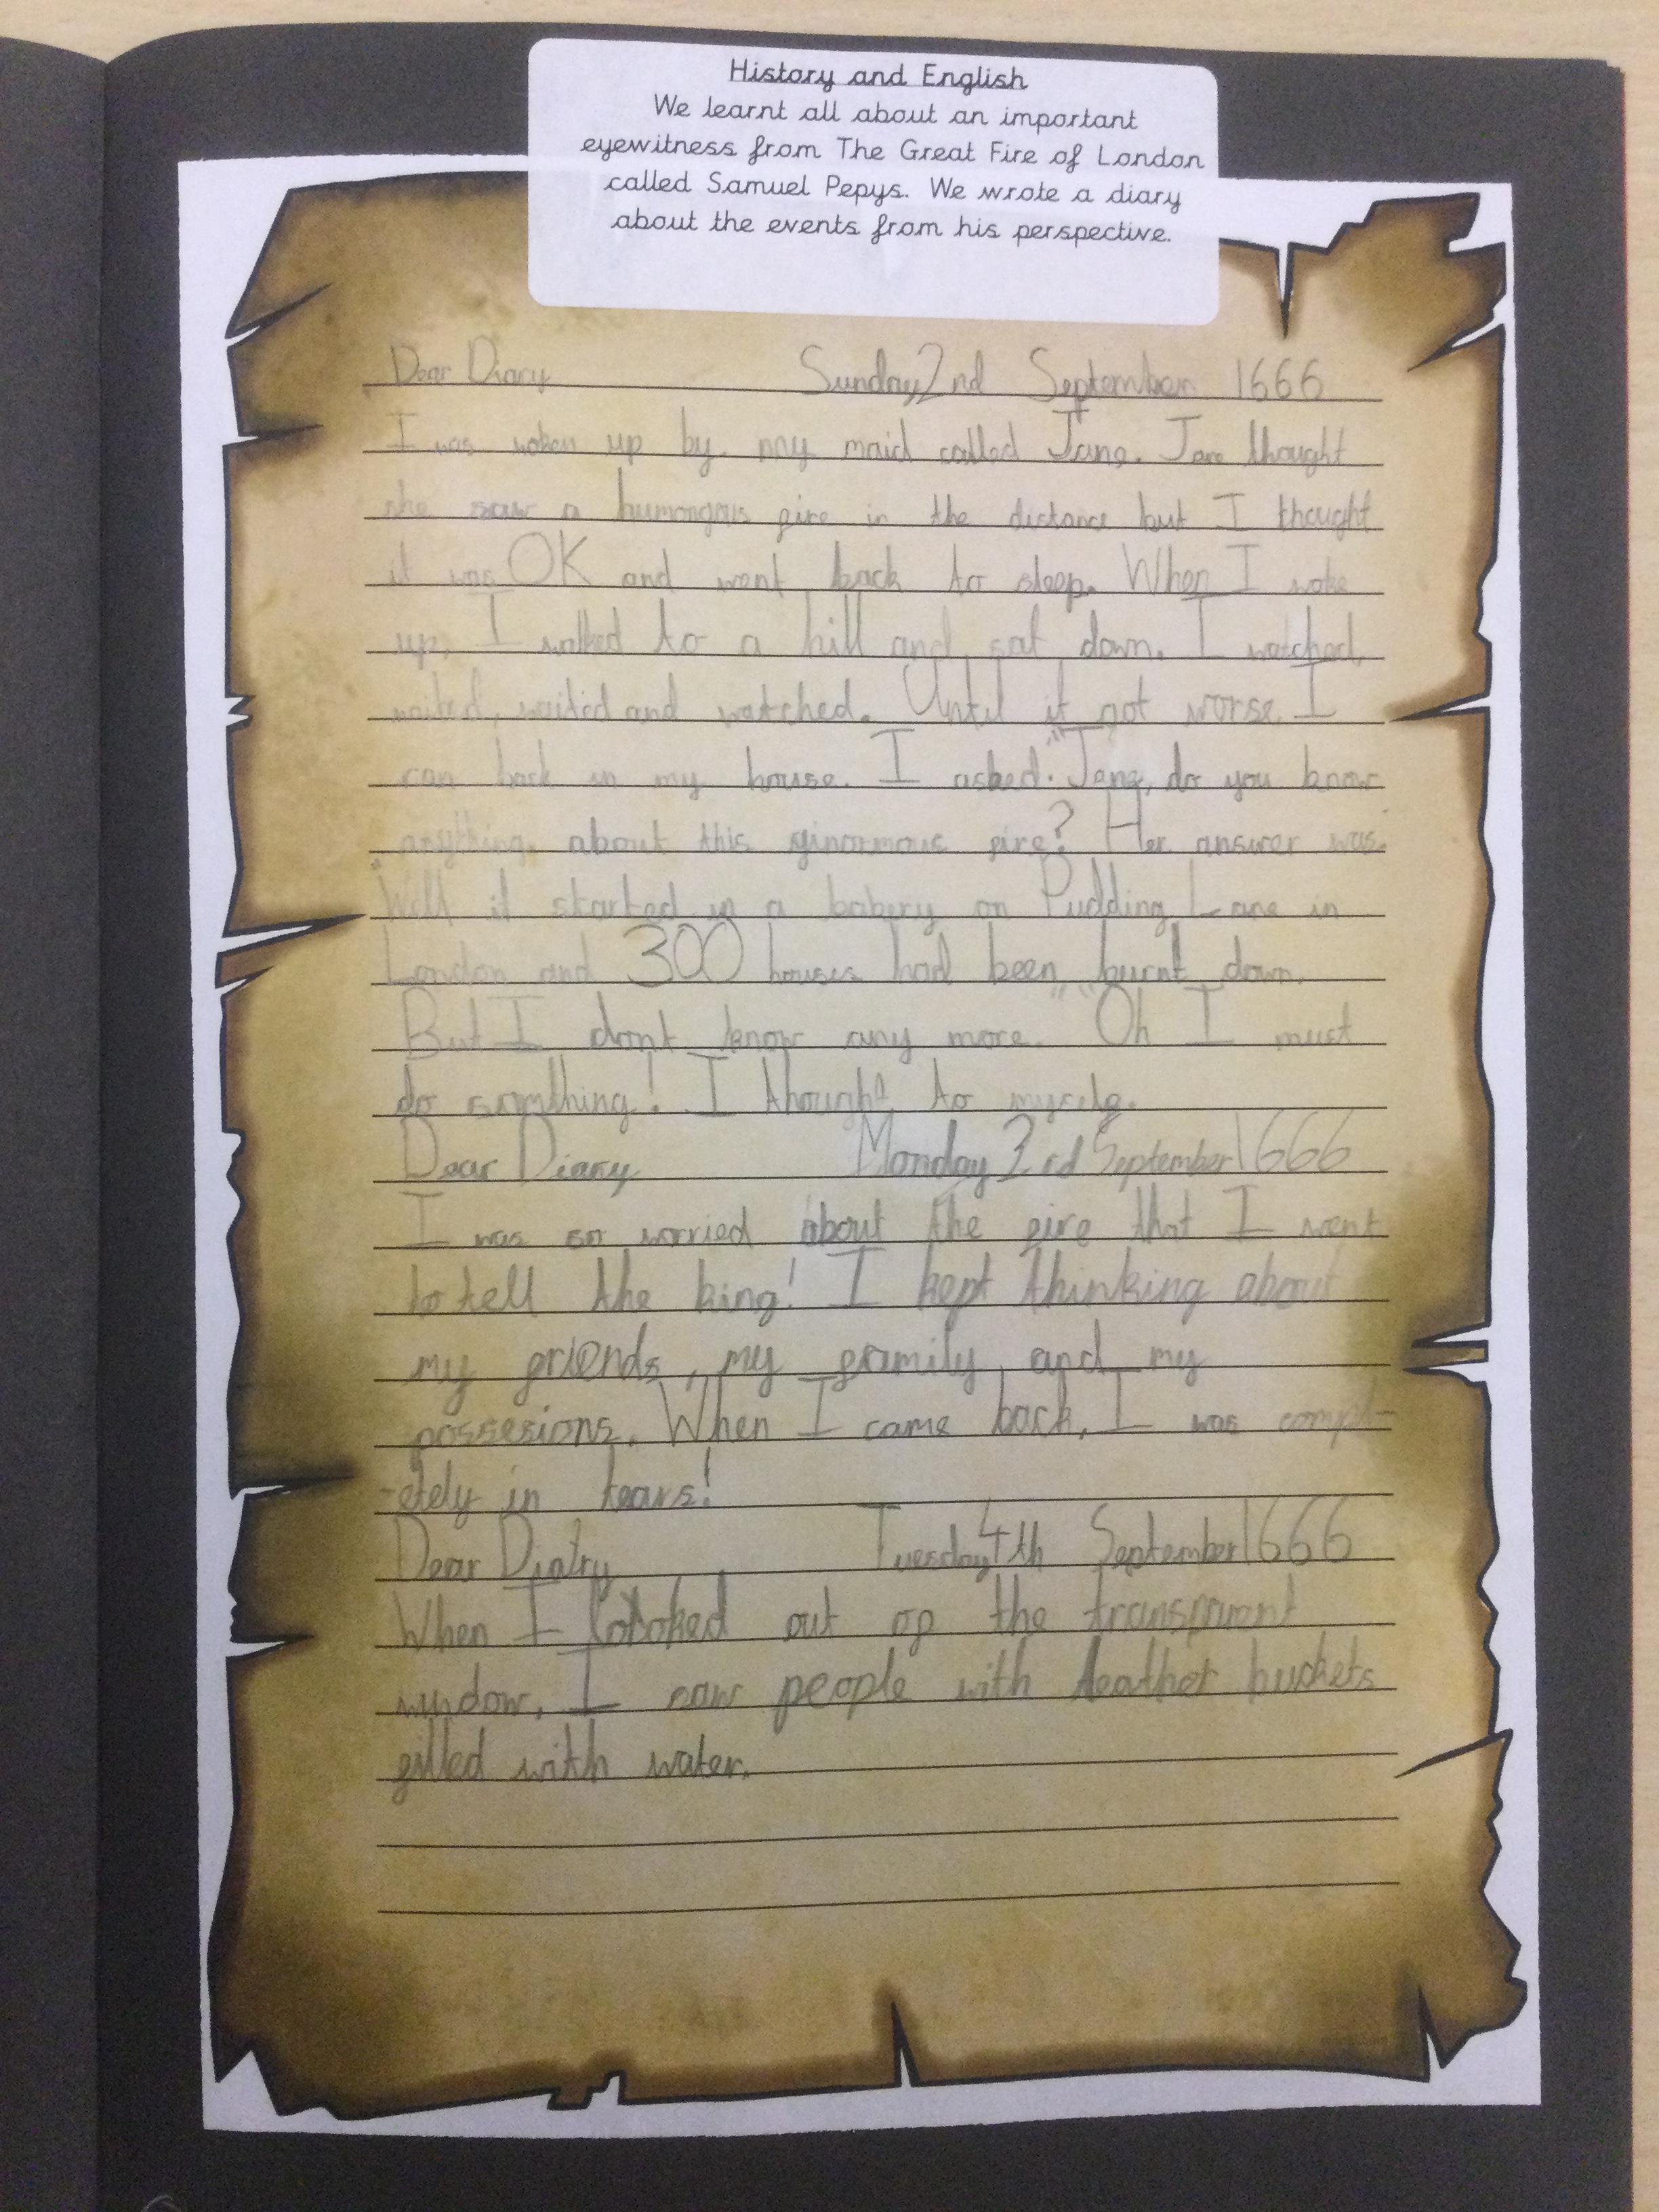 History and English
We learnt all about an important
eyewitness from The Great Fire of London
called Samuel Pepys. We wrote a diary
about the events from his perspective.
Dear Diary Sunday 2nd September 1666
I was woken up by my maid called Jane. Jane thought
she saw a humongous fire in the distance but I thought
it was OK and went back to sleep. When I woke
up, I walked to a hill and sat down. I watched,
waited, waited and watched. Until it got worse I
ran back in my house. I asked. "Jane, do you know
anything about this ginormous fire? Her answer was.
"Well it started in a bakery on Pudding Lane in
London and 300 houses had been burnt down.
But I dont know any more." "Oh I must
do somthing! I thought to myself.
Dear Diary Monday 3rd September 1666
I was so worried about the fire that I went
to tell the king! I kept thinking about
my friends, my family and my
possesions. When I came back, I was compl-
-etely in tears!
Dear Diatry Tuesday 4th September 1666
When I looked out of the transparent
window, I saw people with leather buckets
filled with water.